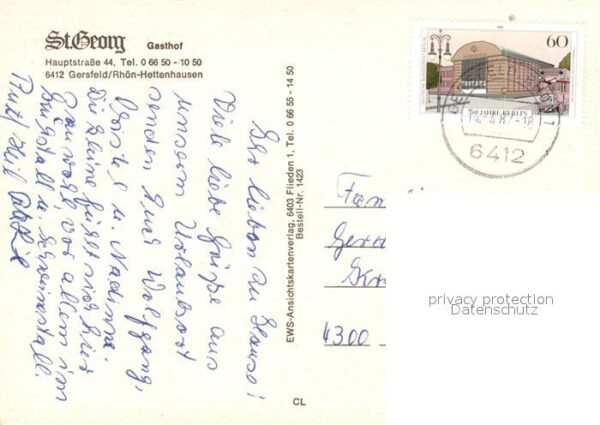 St. Georg Gasthof
Hauptstraße 44, Tel. 0 66 50 - 10 50
6412 Gersfeld/Rhön-Hettenhausen
Ihr lieben zu Hause!
Viele liebe Grüße aus
unserem Urlaubsort
senden Euch Wolfgang,
u. Nadine.
Die Kleine fühlt sich hier
sauwohl, vor allem im
u. Schweinestall.
EWS-Ansichtskartenverlag, 6403 Flieden 1, Tel. 0 66 55 - 14 50
Bestell-Nr. 1423
CL
60
750 JAHRE BERLIN
6412
Fam
4300
privacy protection
Datenschutz